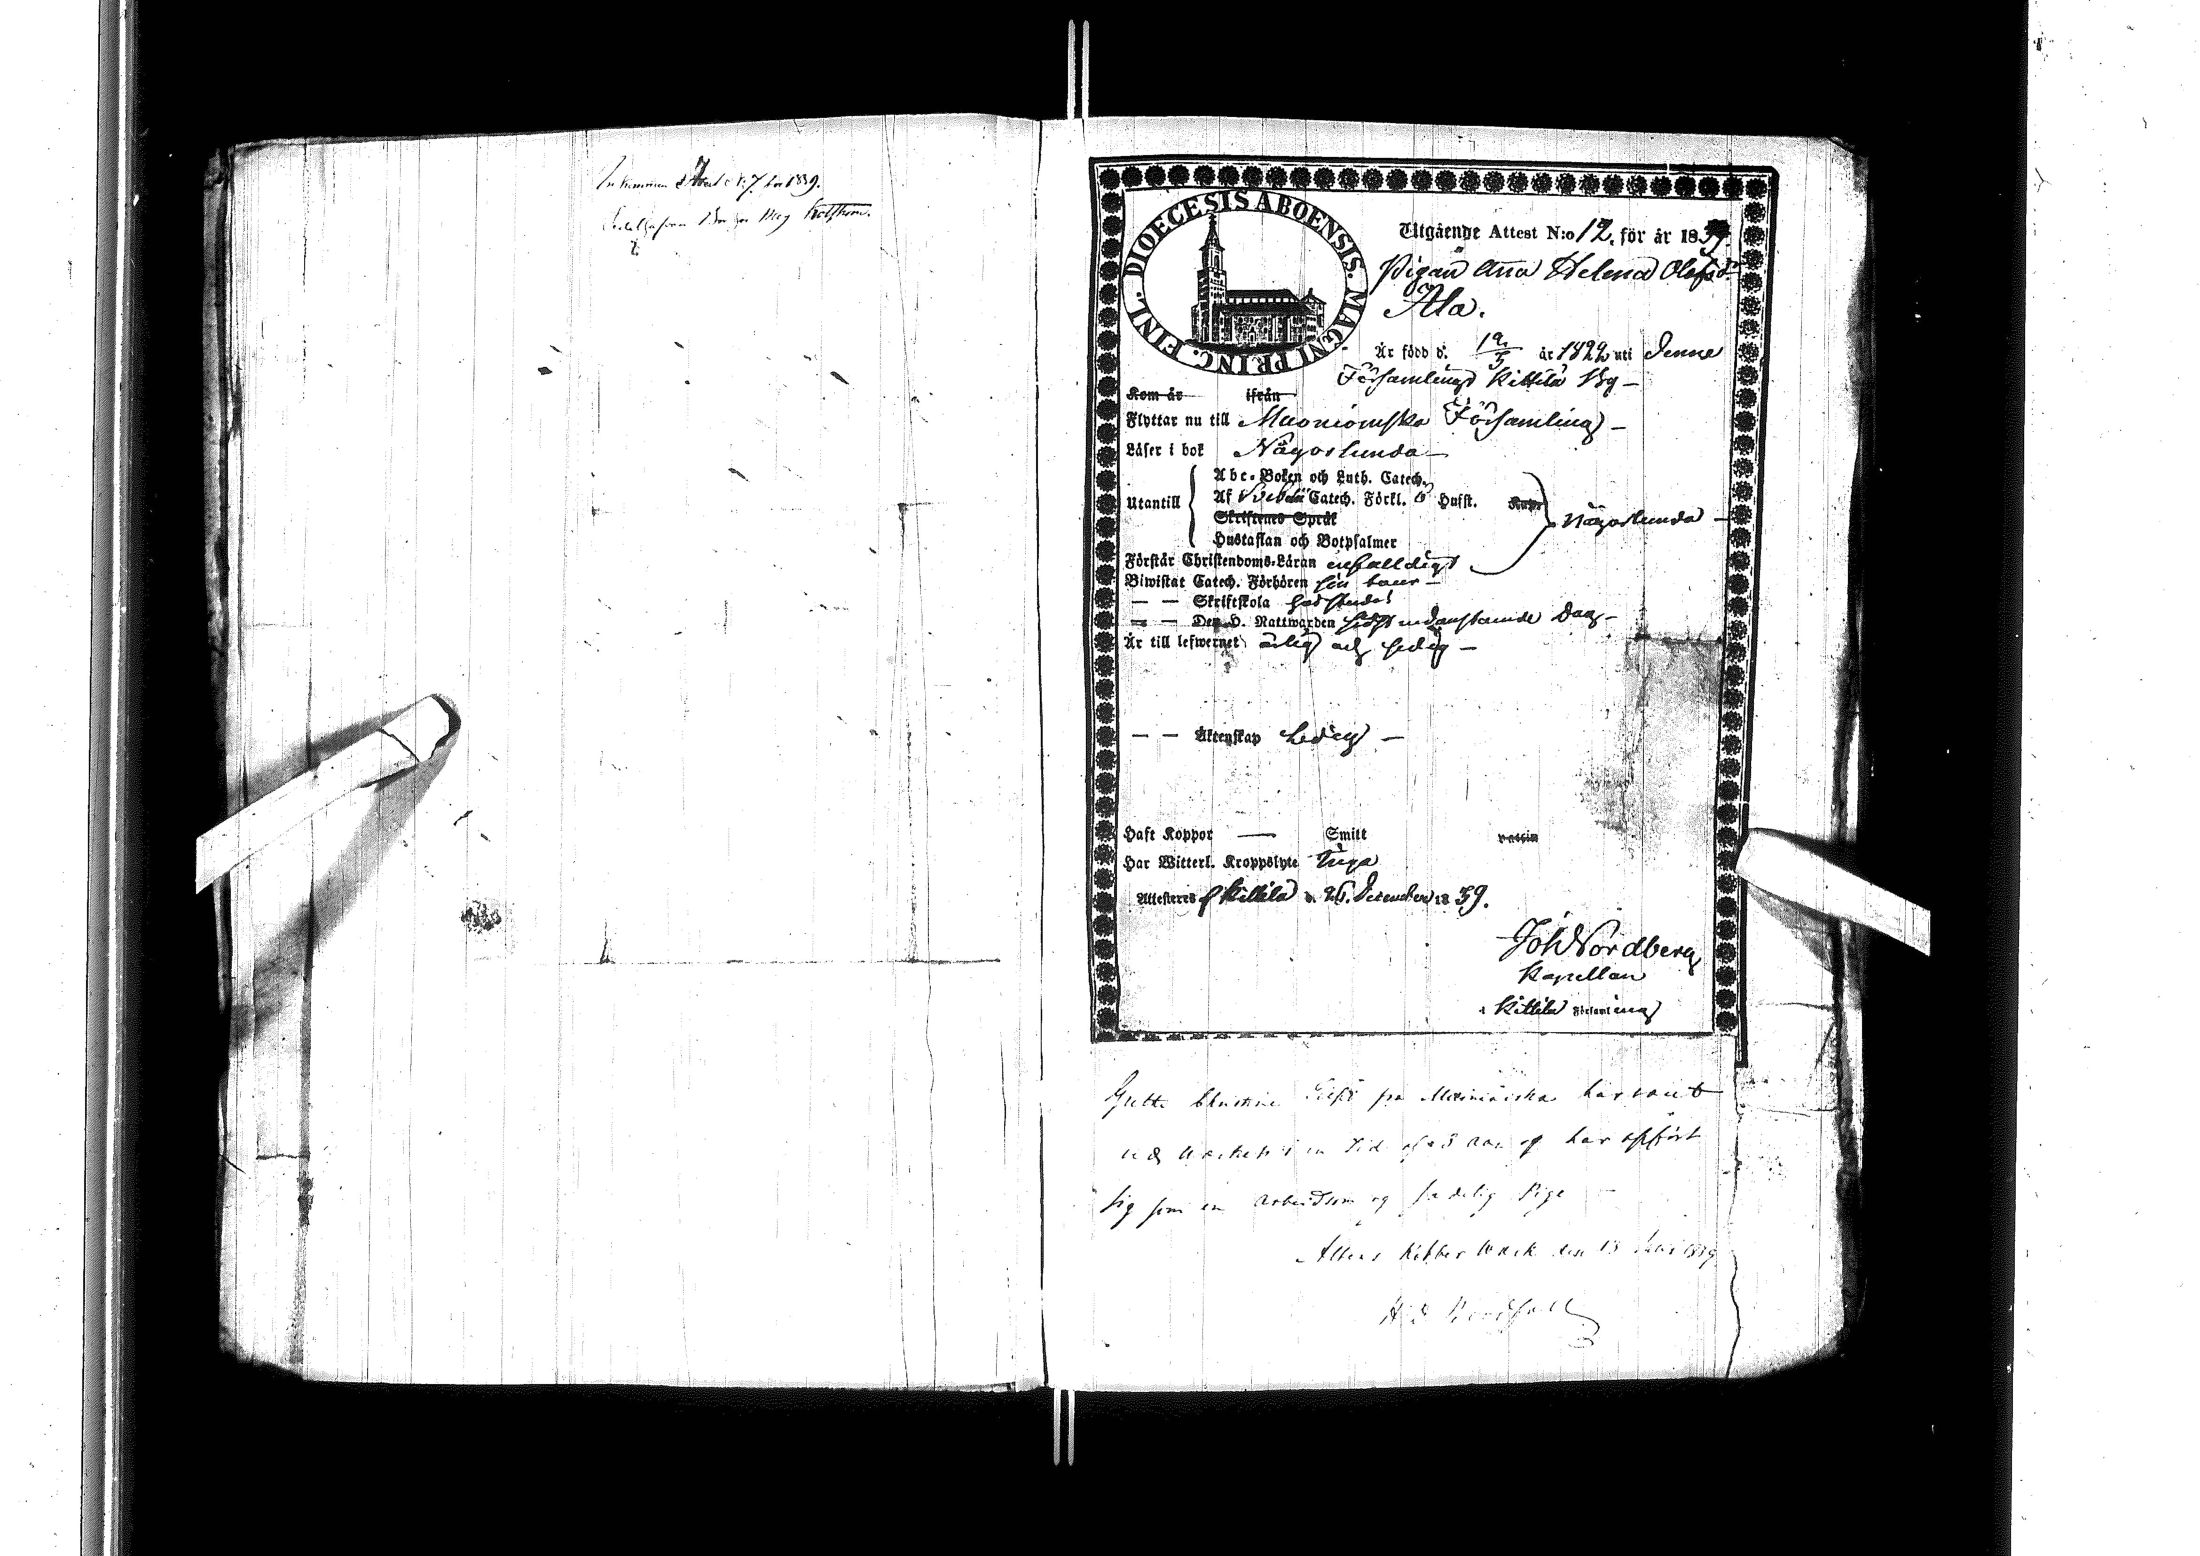 Inkommen d. 1839.
DIOECESIS ABOENSIS. MAGNI PRINC. FINL.
Utgående Attest N:o 12. för år 1839.
Pigan Anna Helena Olofsd:r
Ala.
Är född d. år 1822 uti denne
Församlings Kittilä By –
Kom år ifrån
Flyttar nu till Muonionniska Församling –
Läser i bok Någorlunda –
Utantill
Abc-Boken och Luth. Catech.
Af Catech. Förkl. Hufst.
Skriftenes Språk
Hustaflan och Botpsalmer
Någorlunda –
Förstår Christendoms-Läran enfalldigt
Biwistat Catech. Förhören
– – Skriftskola
– – Den H. Nattwarden sidst Dag –
Är till lefwernet ärlig och sedig –
– – Äktenskap Ledig –
Haft Koppor — Smitt Vaccin
Har Witterl. Kroppslyte Inga
Attesteres af Kittilä d. 26. December 1839.
Joh Nordberg
Kapellan
i Kittilä Församling
Grette Christine fra Muoniniska har vært
ved Værket i en Tid af 3 Aar og har opført
sig som en arbeidsom og sædelig Pige
Altens Kobber Værk den 13 1839